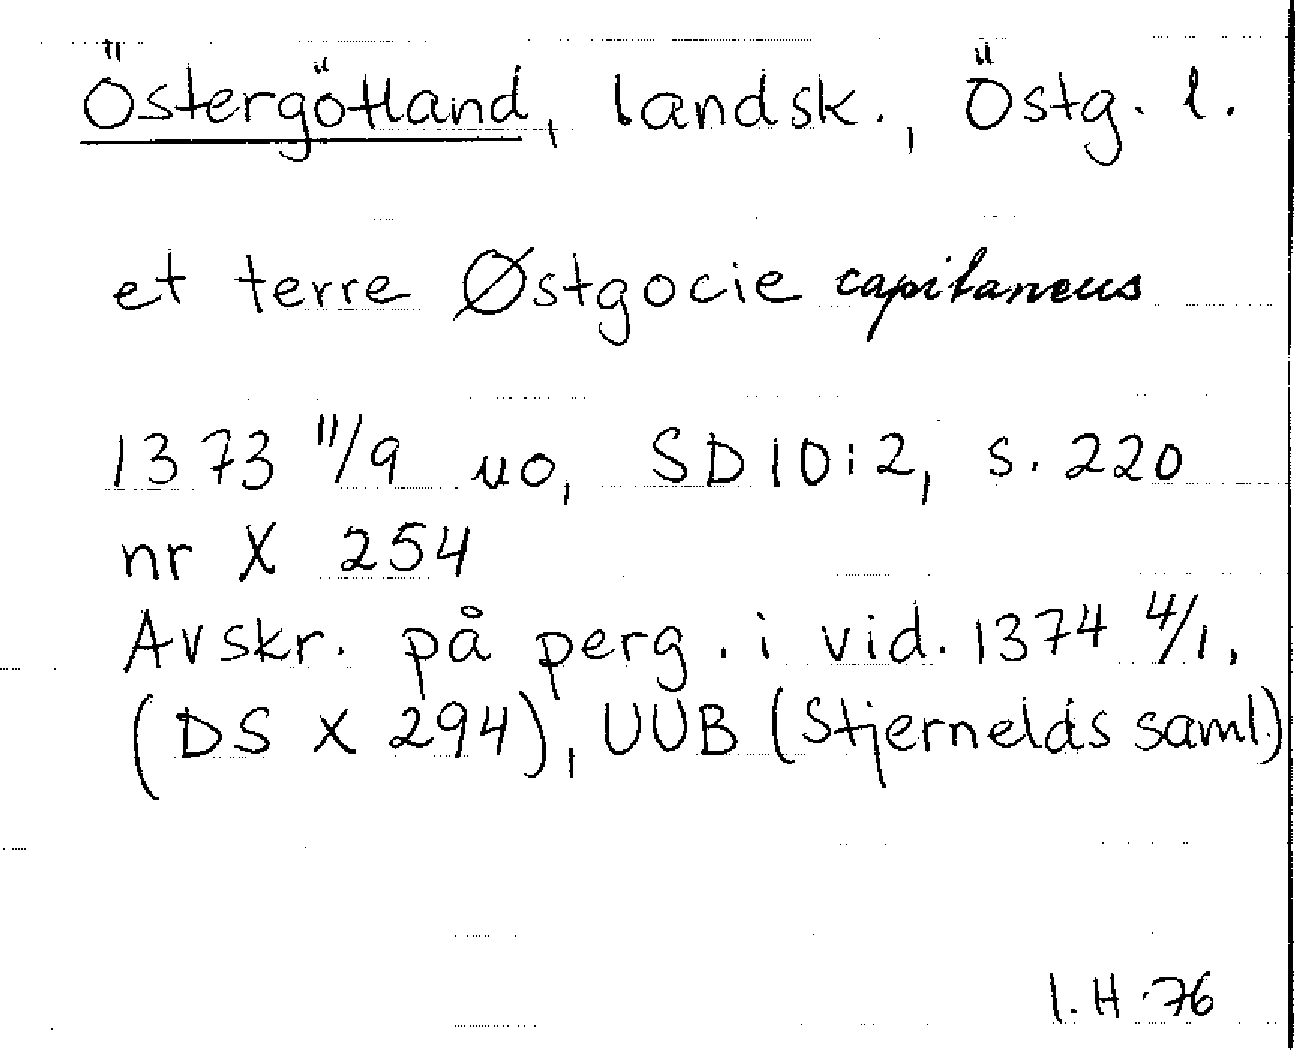 Östergötland, landsk., Östg. l.
et terre Østgocie capitaneus
1373 11/9 uo, SD 10:2, s. 220
nr X 254
Avskr. på perg. i vid. 1374 4/1,
(DS X 294), UUB (Stjernelds saml.)
I. H. 76